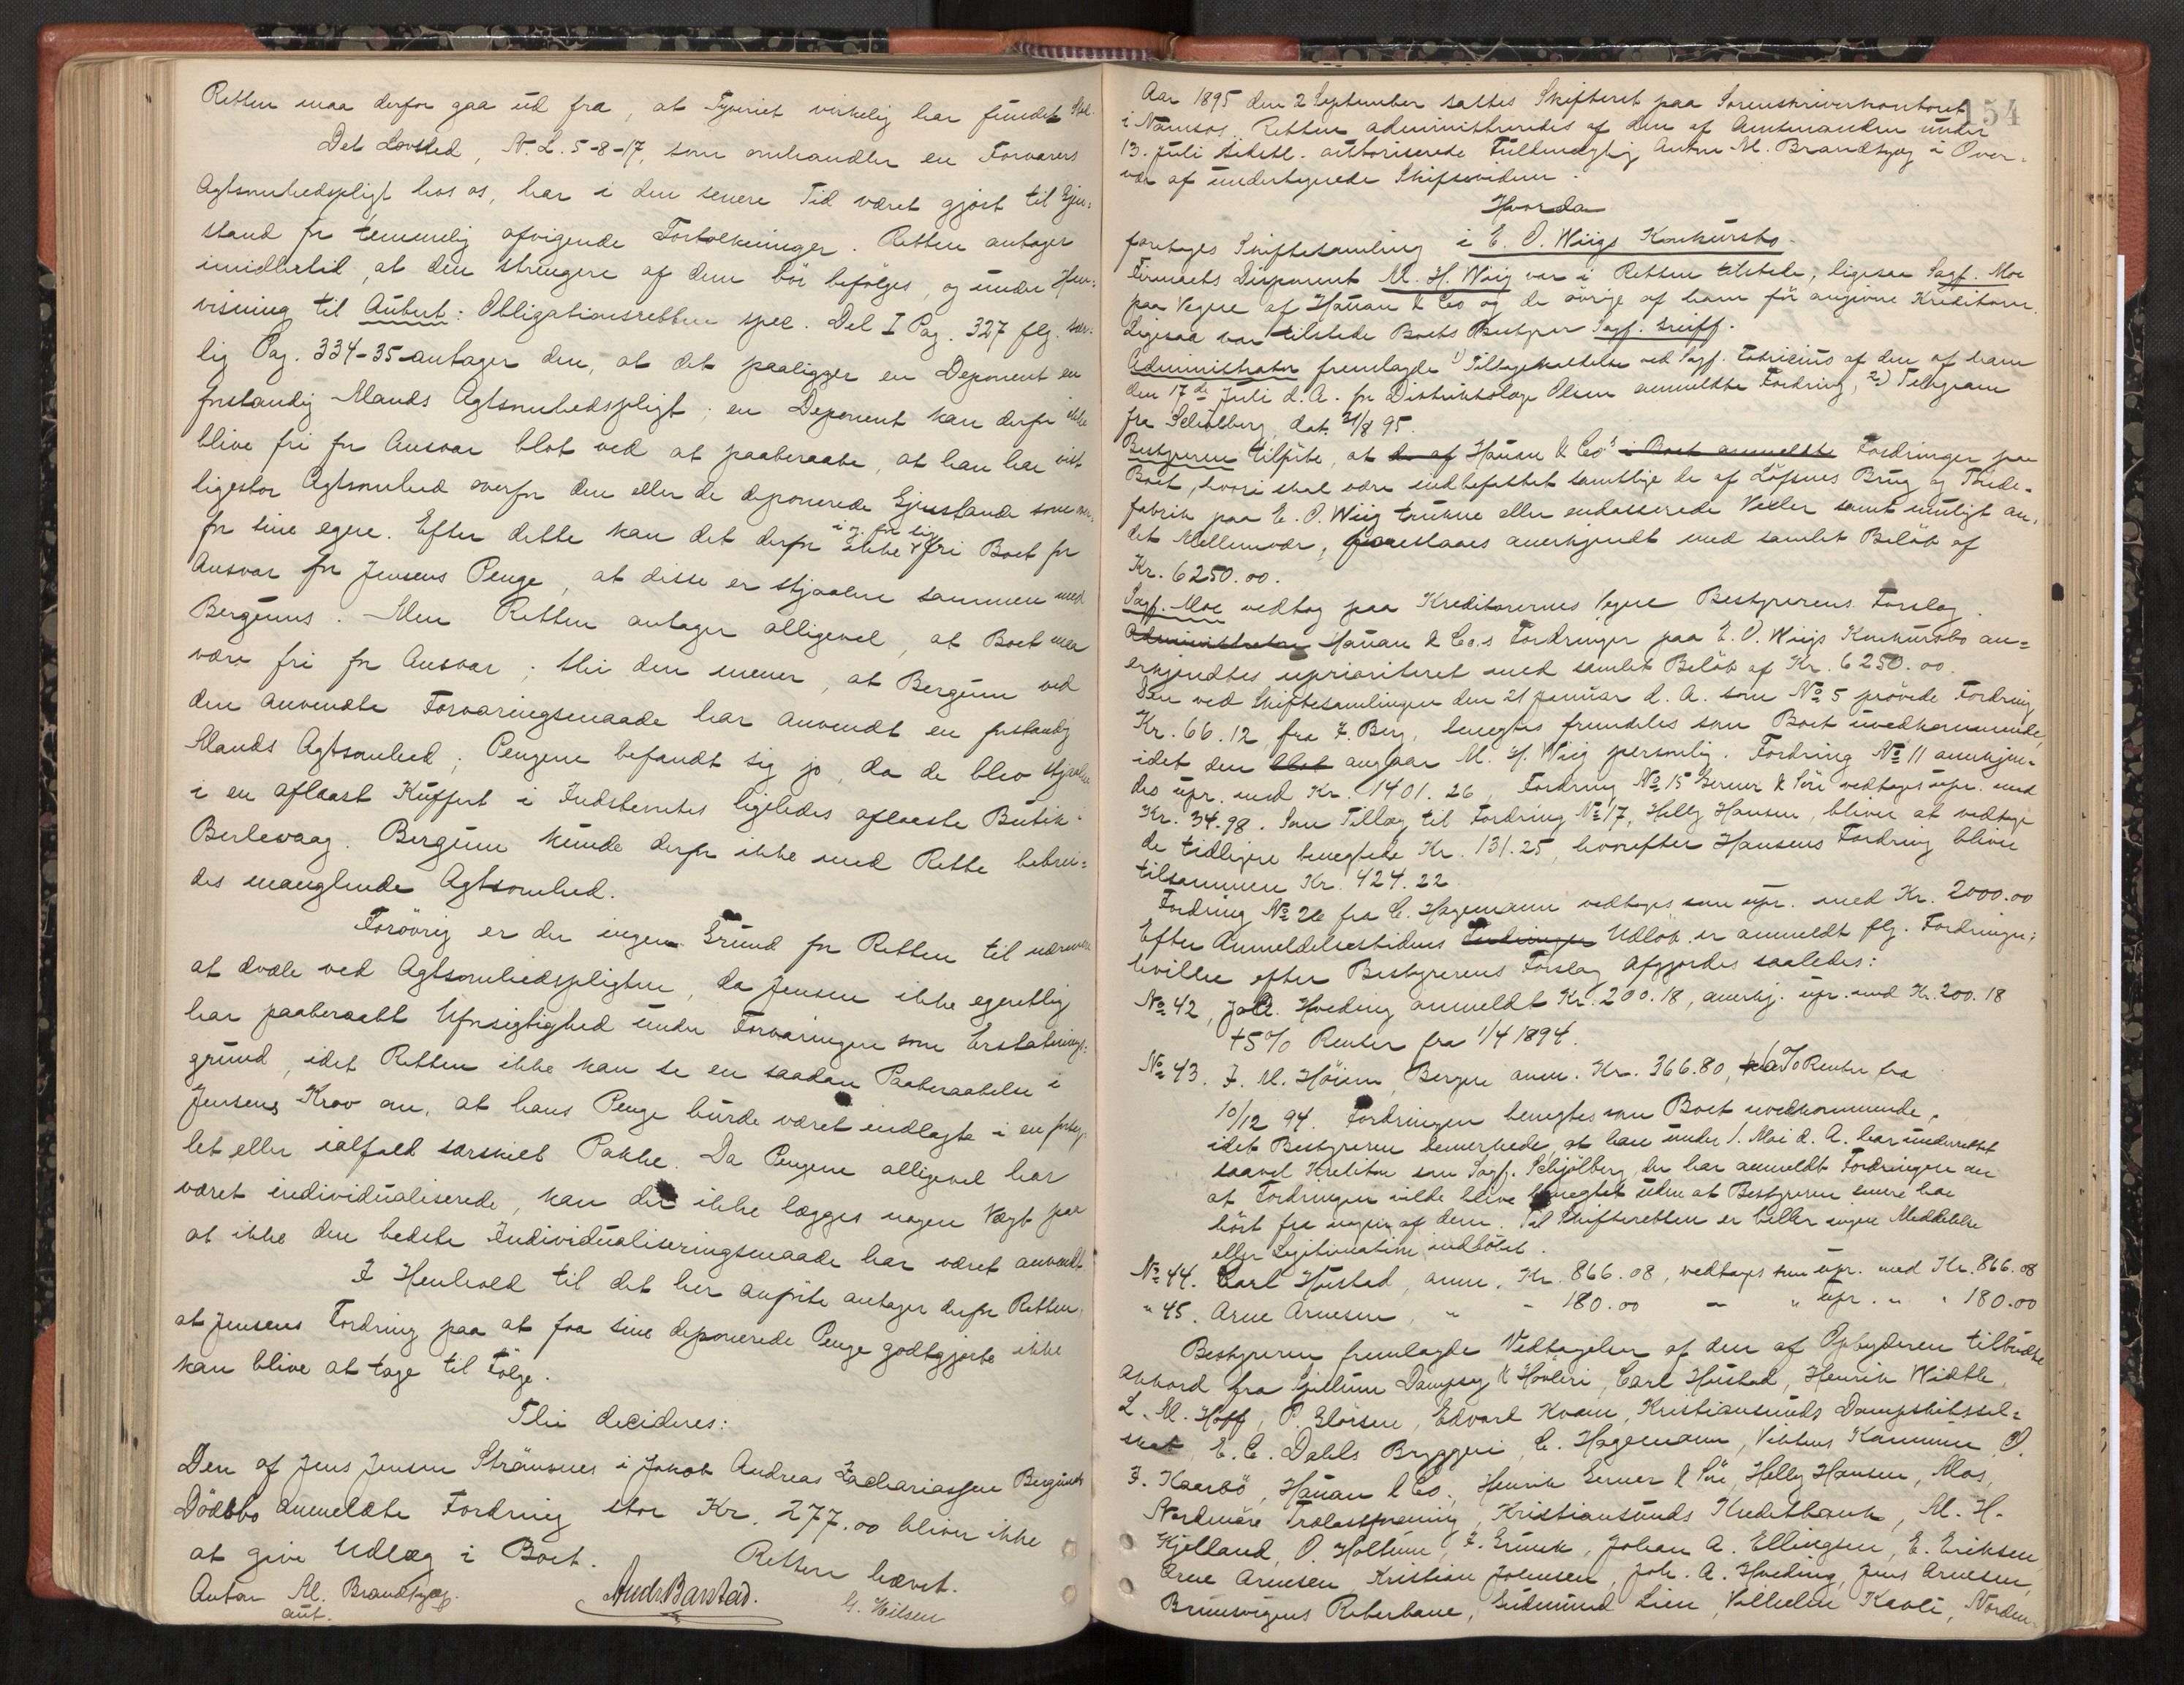 Retten maa derfor gaa ud fra, at Tyveriet virkelig har fundet Sted.
Det Lovsted, N. L. 5-8-17, som omhandler en Forvarers
Agtsomhedspligt hos os, har i den senere Tid været gjort til Gjen-
stand for temmelig afvigende Fortolkninger. Retten antager
imidlertid, at den strengere af dem bör befölges, og under Hen-
visning til Aubert: Obligationsretten spec. Del I Pag. 327 flg. sær-
lig Pag. 334-35 antager den, at det paaligger en Deponent en
forstandig Mands Agtsomhedspligt; en Deponent kan derfor ikke
blive fri for Ansvar blot ved at paaberaabe, at han har vist
ligestor Agtsomhed overfor den eller de deponerede Gjenstande som over-
for sine egne. Efter dette kan det derfor ikke i og for sig fri Boet for
Ansvar for Jensens Penge, at disse er stjaalne sammen med
Bergums. Men Retten antager alligevel, at Boet maa
være fri for Ansvar; thi den mener, at Bergum ved
den anvendte Forvaringsmaade har anvendt en forstandig
Mands Agtsomhed; Pengene befandt sig jo, da de blev stjaalne
i en aflaast Kuffert i Indstevntes ligeledes aflaaste Butik i
Berlevaag. Bergum kunde derfor ikke med Rette bebrei-
des manglende Agtsomhed.
Forövrig er der ingen Grund for Retten til nærmere
at dvæle ved Agtsomhedspligten, da Jensen ikke egentlig
har paaberaabt Uforsigtighed under Forvaringen som Erstatnings-
grund, idet Retten ikke kan se en saadan Paaberaabelse i
Jensens Krav om, at hans Penge burde været indlagte i en forseg-
let eller ialfald særskilt Pakke. Da Pengene alligevel har
været individualiserede, kan der ikke lægges nogen Vægt paa
at ikke den bedste Individualiseringsmaade har været anvendt.
I Henhold til det her anförte antager derfor Retten,
at Jensens Fordring paa at faa sine deponerede Penge godtgjorte ikke
kan blive at tage til Fölge.
Thi decideres:
Den af Jens Jensen Strömsnes i Jakob Andreas Zachariassen Bergums
Dödsbo anmeldte Fordring stor Kr. 277.00 bliver ikke
at give Udlæg i Boet.
Retten hævet.
Anton M. Brandtzæg
aut.
Andr Barstad.
G. Nilsen
154
Aar 1895 den 2 September sattes Skifteret paa Sorenskriverkontoret
i Namsos. Retten administreredes af den af Amtmanden under
13. Juli sidstl. authoriserede Fuldmægtig Anton M. Brandtzæg i Over-
vær af undertegnede Skiftevidner.
Hvorda
foretoges Skiftesamling i E. O. Wiigs Konkursbo.
Firmaets Disponent M. H. Wiig var i Retten tilstede, ligesaa Sagf. Moe
paa Vegne af Hauan & Co og de övrige af ham för angivne Kreditorer.
Ligesaa var tilstede Boets Bestyrer Sagf. Sneiff.
Administrator fremlagde 1) Tilbagekaldelse ved Sagf. Fabricius af den af ham
den 17de Juli d. A. for Distriktslæge Olsen anmeldte Fordring, 2) Telegram
fra Schjölberg, dat. 31/8 95.
Bestyreren tilförte, at de af Hauan & Co's i Boet anmeldte Fordringer paa
Boet, hvori skal være indbefattet samtlige de af Löfsnes Brug og Tönde-
fabrik paa E. O. Wiig trukne eller endosserede Vexler samt muligt an-
det Mellemvær, foreslaaes anerkjendt med samlet Belöb af
Kr. 6250.00.
Sagf. Moe vedtog paa Kreditorernes Vegne Bestyrerens Forslag.
Administrator Hauan & Co.s Fordringer paa E. O. Wiigs Konkursbo an-
erkjendtes uprioriteret med samlet Belöb af Kr. 6250.00.
Den ved Skiftesamlingen den 21 Januar d. A. som No 5 prövede Fordring
Kr. 66.12, fra F. Berg, benegtes fremdeles som Boet uvedkommende,
idet den blot angaar M. H. Wiig personlig. Fordring No 11 anerkjen-
des upr. med Kr. 1401.26, Fordring No 15 Gerner & Sön vedtages upr. med
Kr. 34.98. Som Tillæg til Fordring No 17, Helly Hansen, bliver at vedtage
de tidligere benegtede Kr. 131.25, hvorefter Hansens Fordring bliver
tilsammen Kr. 424.22.
Fordring No 26 fra C. Hagemann vedtages som upr. med Kr. 2000.00
Efter Anmeldelsestidens Fordringer Udlöb er anmeldt flg. Fordringer,
hvilke efter Bestyrerens Forslag afgjordes saaledes:
No 42, Joh. A. Hveding anmeldt Kr. 200.18, anerkj. upr. med Kr. 200.18
+ 5 % Renter fra 1/4 1894.
No 43. F. M. Höisen, Bergen anm. Kr. 366.80, + 6 % Renter fra
10/12 94. Fordringen benegtes som Boet uvedkommende,
idet Bestyreren bemerkede, at han under 1. Mai d. A. har underrettet
saavel Kreditor som Sagf. Schjölberg, der har anmeldt Fordringen om
at Fordringen vilde blive benegtet uden at Bestyreren senere har
hört fra nogen af dem. Til Skifteretten er heller ingen Meddelelse
eller Legitimation indlöbet.
No 44. Carl Hustad, anm. Kr. 866.08, vedtages som upr. med Kr. 866.08
" 45. Arne Arnesen, " - 180.00 - " upr. " " 180.00
Bestyreren fremlagde Vedtagelser af den af Opbyderen tilbudte
Akkord fra Gjellum Dampsag & Hövleri, Carl Hustad, Henrik Widthe,
L. M. Hoff, P. Glörsen, Edvard Kvam, Kristiansunds Dampskibssel-
skab, E. C. Dahls Bryggeri, C. Hagemann, Viktens Kommune, O.
F. Kaarbö, Hauan & Co., Henrik Gerner & Sön, Helly Hansen, Mos,
Nordmöre Trælastforening, Kristiansunds Kreditbank, M. H.
Kjelland, O. Holtum, F. Grünek, Johan A. Ellingsen, E. Eriksen
Arne Arnesen, Kristian Johensen, Joh. A. Hveding, Jens Arnesen,
Brunsvigens Reberbane, Gudmund Lien, Vilhelm Kavli, Norden-